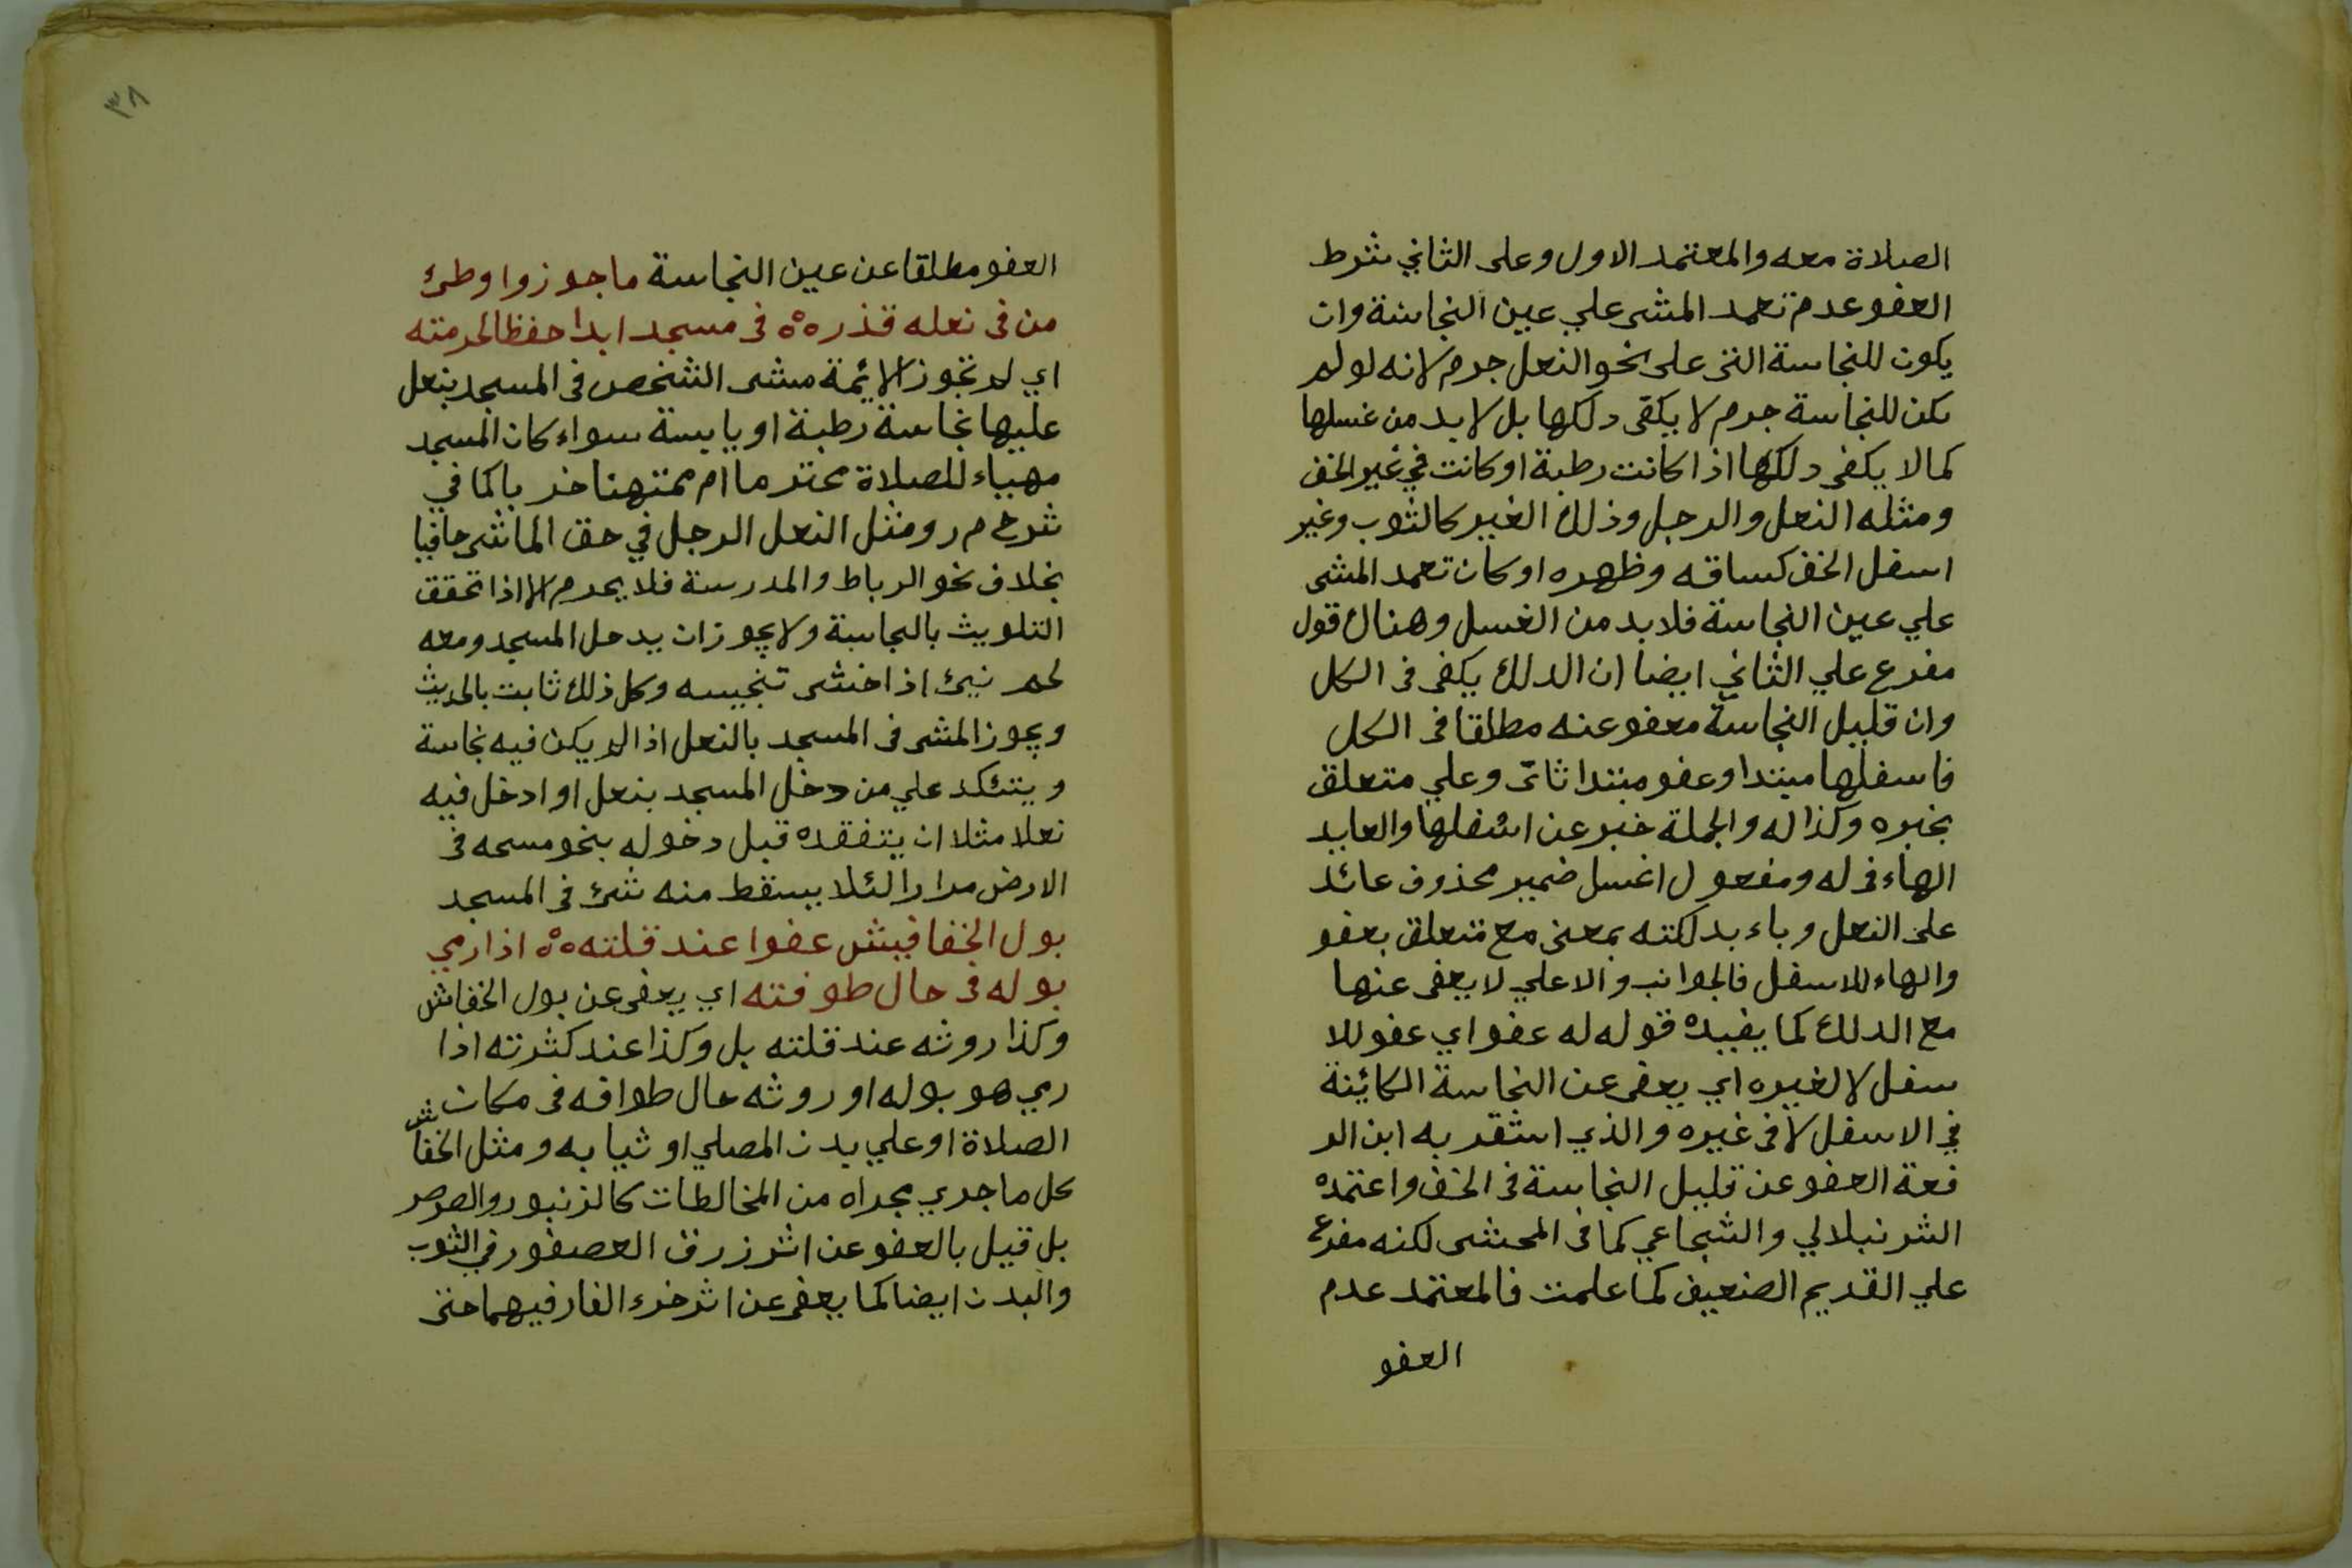 الصلاة معه والمعتمد الاول وعلى الثاني شرط
العفو عدم تعمد المشى علي عين النجاسة وان
يكون للنجاسة التى على نحو النعل جرم لانه لو لم
يكن للنجاسة جرم لا يكفى دلكها بل لا بد من غسلها
كما لا يكفى دلكها اذا كانت رطبة او كانت في غير الخف
ومثله النعل والرجل وذلك الغير كالثوب وغير
اسفل الخف كساقه وظهره او كان تعمد المشى
علي عين النجاسة فلا بد من الغسل وهناك قول
مفرع علي الثاني ايضا ان الدلك يكفى فى الكل
وان قليل النجاسة معفو عنه مطلقا فى الكل
فاسفلها مبتدا وعفو مبتدا ثانى وعلي متعلق
بخبره وكذا له والجملة خبر عن اسفلها والعايد
الهاء فى له ومفعول اغسل ضمير محذوف عائد
على النعل وباء بدلكته بمعنى مع متعلق بعفو
والهاء للاسفل فالجوانب والاعلي لا يعفى عنها
مع الدلك كما يفيده قوله له عفو اي عفو للا
سفل لا لغيره اي يعفى عن النجاسة الكائينة
في الاسفل لا فى غيره والذي استقر به ابن الر
فعة العفو عن قليل النجاسة فى الخف واعتمده
الشرنبلالي والشجاعي كما فى المحشى لكنه مفرع
علي القديم الضعيف كما علمت فالمعتمد عدم
العفو
٣٨
العفو مطلقا عن عين النجاسة ما جوزوا وطئ
من فى نعله قذر ه ه فى مسجد ابدا حفظا لحرمته
اي لم تجوز الائمة مشى الشخص فى المسجد بنعل
عليها نجاسة رطبة او يابسة سواء كان المسجد
مهياء للصلاة محترما ام ممتهنا خربا كما في
شرح م ر ومثل النعل الرجل في حق الماشى حافيا
بخلاف نحو الرباط والمدرسة فلا يحرم الا اذا تحقق
التلويث بالنجاسة ولا يجوز ان يدخل المسجد ومعه
لحم نيئ اذا خشى تنجيسه وكل ذلك ثابت بالحديث
ويجوز المشى فى المسجد بالنعل اذا لم يكن فيه نجاسة
ويتئكد علي من دخل المسجد بنعل او ادخل فيه
نعلا مثلا ان يتفقده قبل دخوله بنحو مسحه فى
الارض مرارا لئلا يسقط منه شئ فى المسجد
بول الخفافيش عفوا عند قلته ه ه اذا رمي
بوله فى حال طوفته اي يعفى عن بول الخفاش
وكذا روثه عند قلته بل وكذا عند كثرته اذا
رمي هو بوله او روثه حال طوافه فى مكان
الصلاة او علي بدن المصلي او ثيابه ومثل الخفاش
كل ما جري مجراه من المخالطات كالزنبور والصرصر
بل قيل بالعفو عن اثر زرق العصفور في الثوب
والبدن ايضا كما يعفى عن اثر خرء الفار فيهما حتى